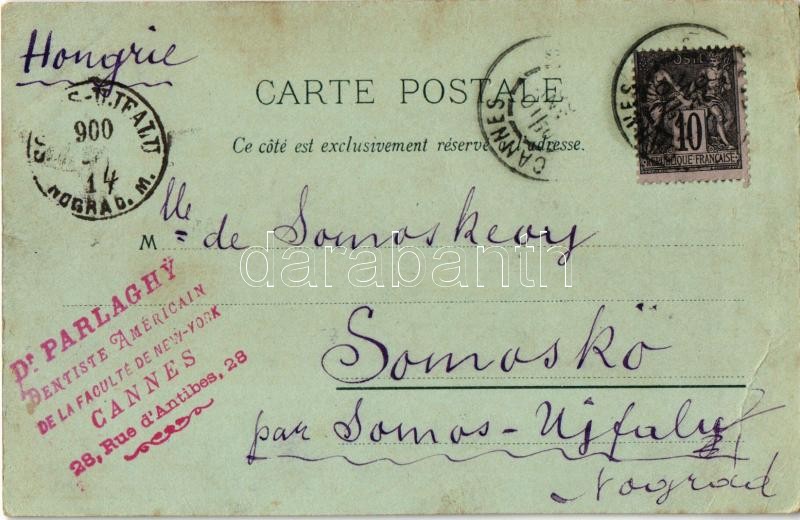 Hongrie
CARTE POSTALE
Ce côté est exclusivement réservé à l'adresse.
900
14
NÓGRÁD. M.
CANNES
10
REPUBLIQUE FRANÇAISE
Mlle de Somoskeoy
darabanth
Somoskö
par Somos-Ujfalu
Nograd
Dr PARLAGHŸ
DENTISTE AMÉRICAIN
DE LA FACULTÉ DE NEW-YORK
CANNES
28, Rue d'Antibes, 28